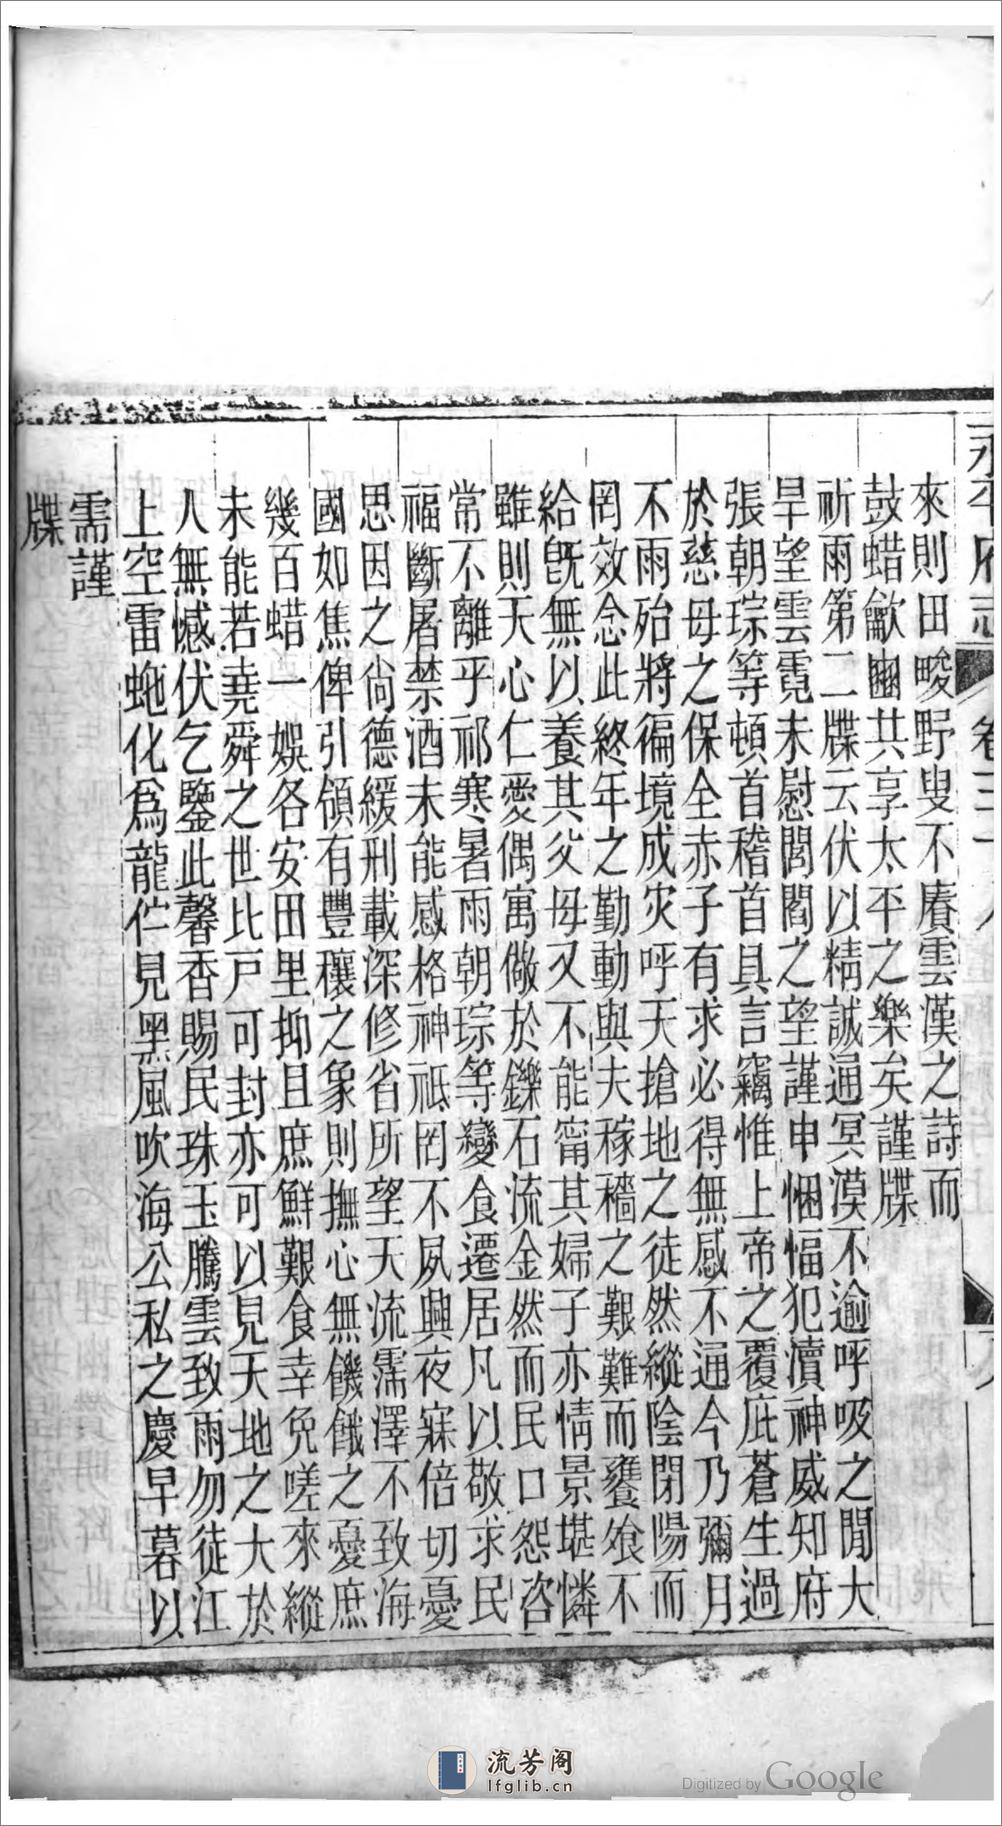 永平府志
卷三十
八
來則田畯野叟不賡雲漢之詩而
鼓蜡龡豳共享太平之樂矣謹牒
祈雨第二牒云伏以精誠通冥漠不逾呼吸之間大
旱望雲霓未慰閭閻之望謹申悃愊犯瀆神威知府
張朝琮等頓首稽首具言竊惟上帝之覆庇蒼生過
於慈母之保全赤子有求必得無感不通今乃彌月
不雨殆將徧境成灾呼天搶地之徒然縱陰閉陽而
罔效念此終年之勤動與夫稼穡之艱難而饔飧不
給旣無以養其父母又不能甯其婦子亦情景堪憐
雖則天心仁愛偶寓儆於鑠石流金然而民口怨咨
常不離乎祁寒暑雨朝琮等變食遷居凡以敬求民
福斷屠禁酒未能感格神祇罔不夙興夜寐倍切憂
思因之尙德緩刑載深修省所望天流霈澤不致海
國如焦俾引領有豐穰之象則撫心無饑餓之憂庶
幾百蜡一娛各安田里抑且庶鮮艱食幸免嗟來縱
未能若堯舜之世比戸可封亦可以見天地之大於
人無憾伏乞鑒此馨香賜民珠玉騰雲致雨勿徒江
上空雷虵化爲龍伫見黑風吹海公私之慶早暮以
需謹
牒
流芳阁
lfglib.cn
Digitized by Google